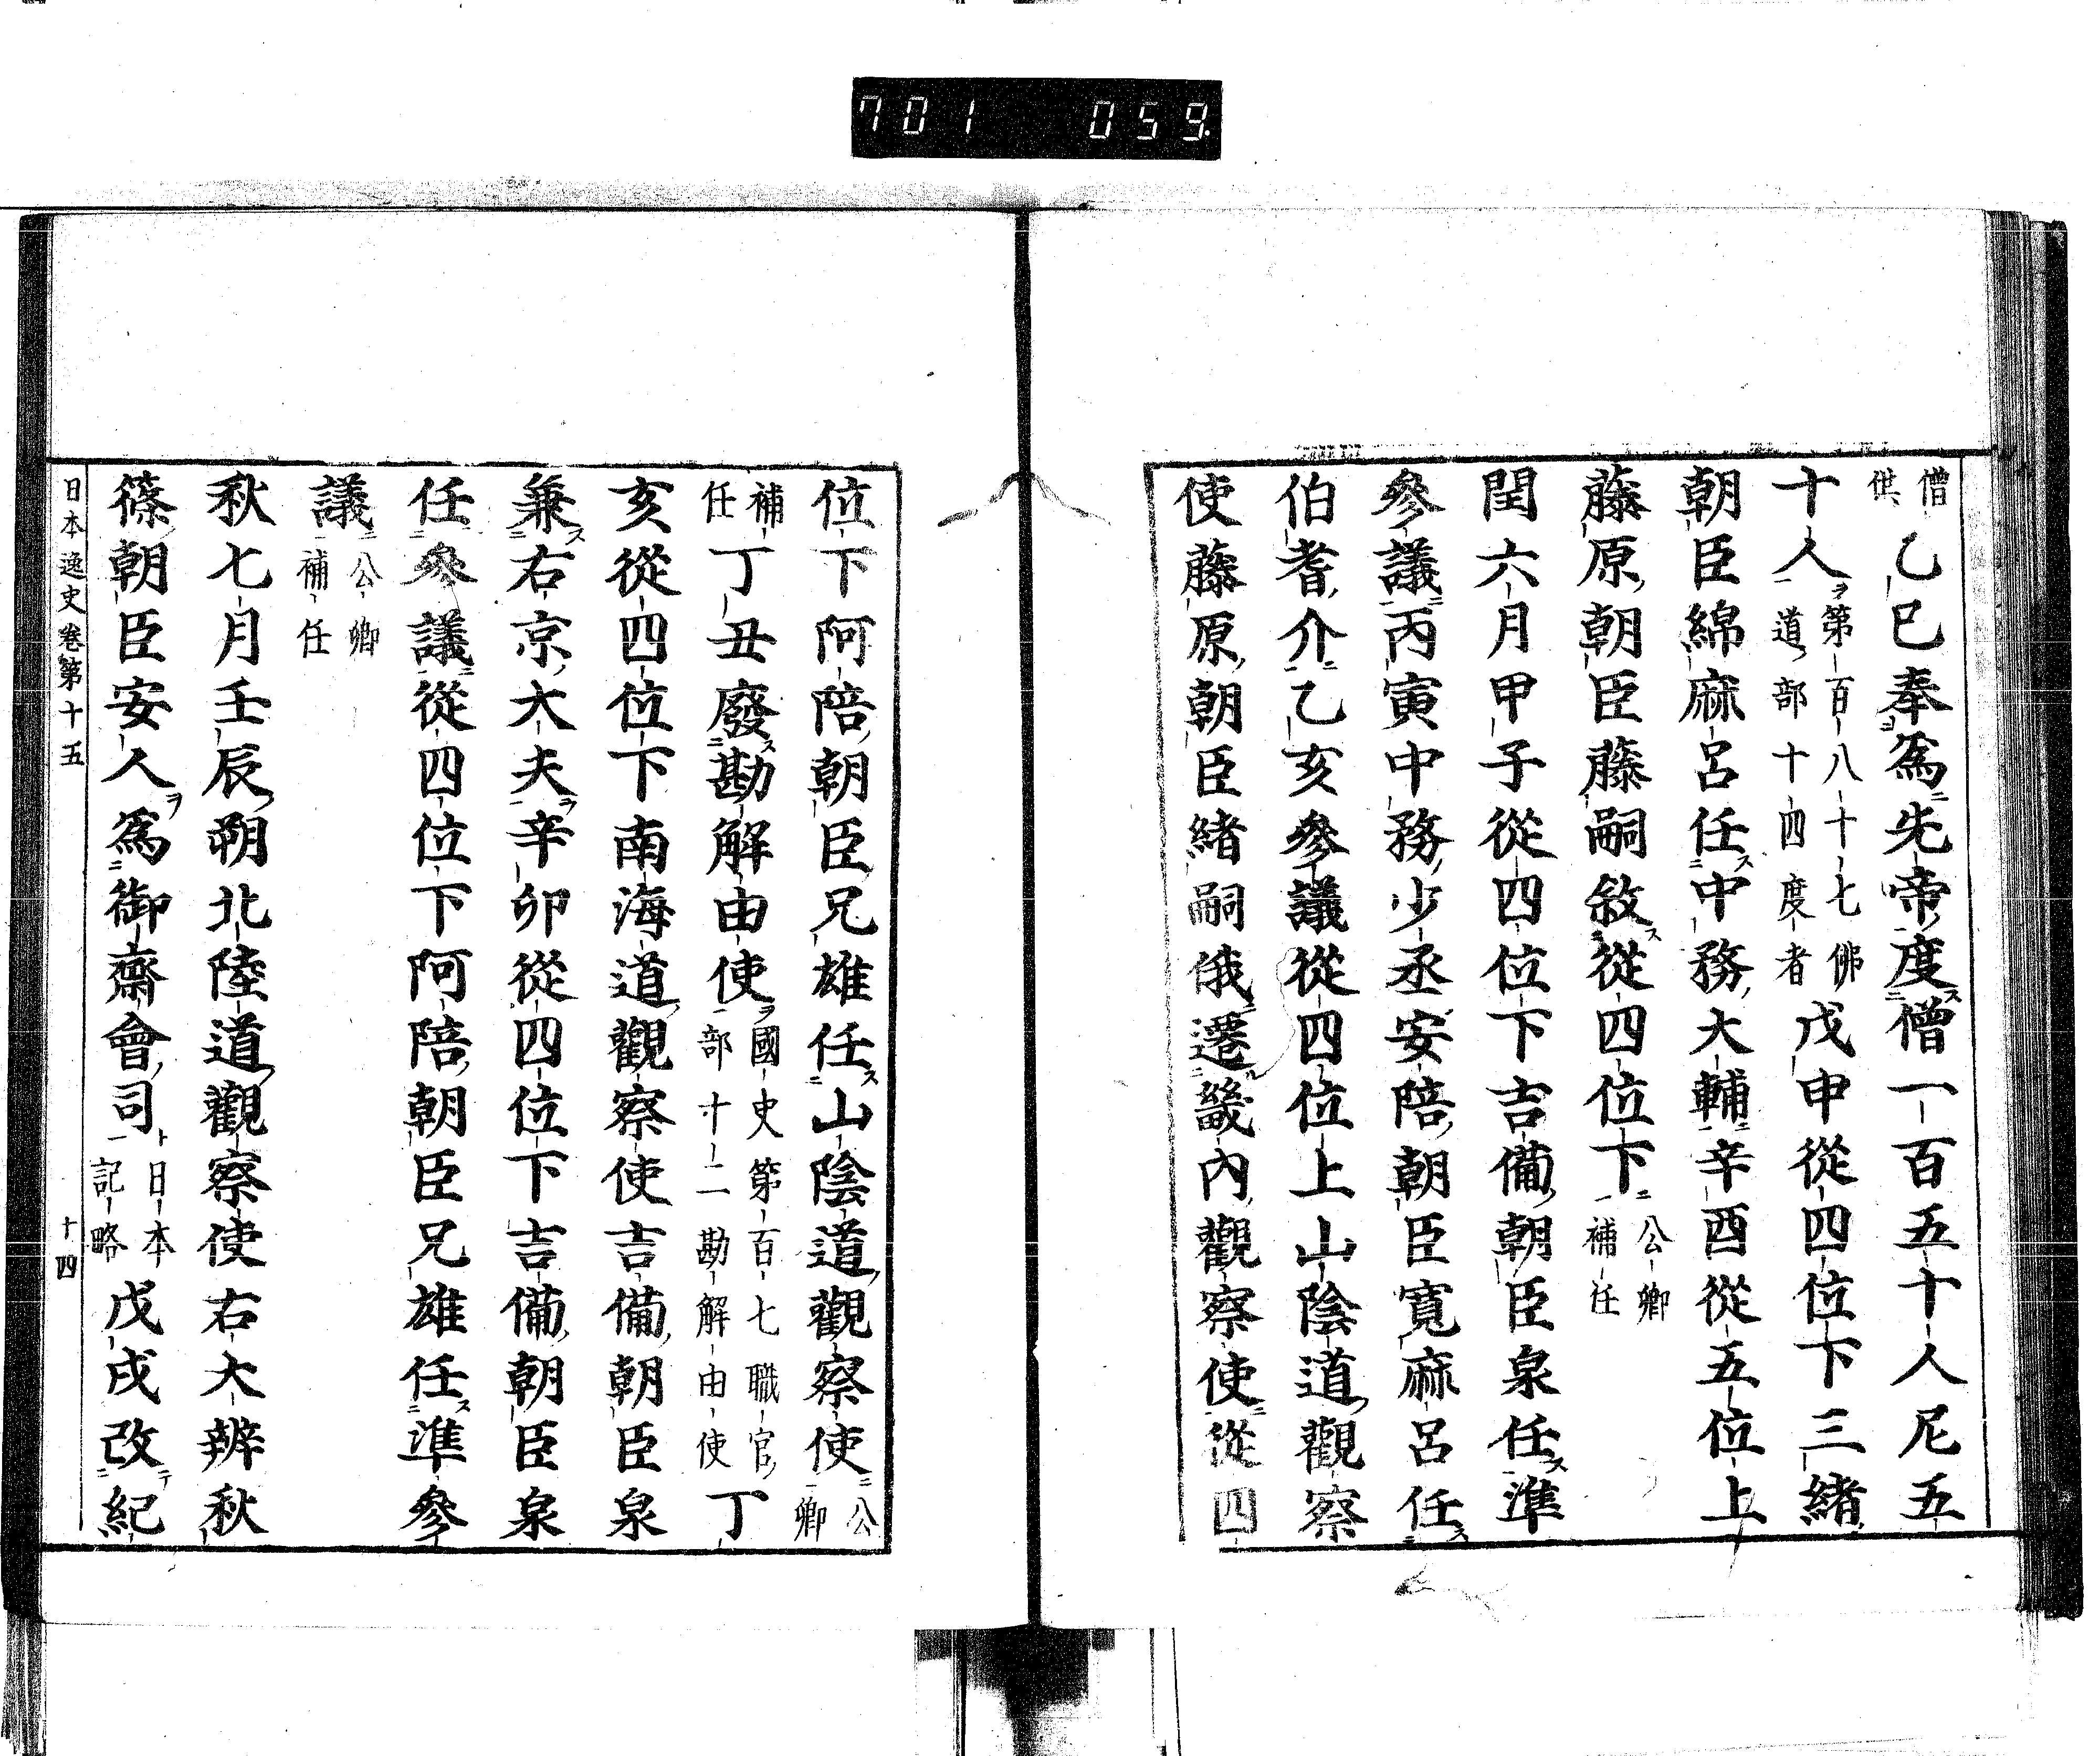 701 059.
僧供乙巳奉爲先帝度僧一百五十人尼五
十人第百八十七佛道部十四度者戊申從四位下三緒
朝臣綿麻呂任中務大輔辛酉從五位上
藤原朝臣藤嗣敘從四位下公卿補任
閏六月甲子從四位下吉備朝臣泉任準
參議丙寅中務少丞安陪朝臣寬麻呂任
伯耆介乙亥參議從四位上山陰道觀察
使藤原朝臣緒嗣俄遷畿內觀察使從四
位下阿陪朝臣兄雄任山陰道觀察使公卿
補任丁丑廢勘解由使國史第百七職官部十二勘解由使丁
亥從四位下南海道觀察使吉備朝臣泉
兼右京大夫辛卯從四位下吉備朝臣泉
任參議從四位下阿陪朝臣兄雄任準參
議公卿補任
秋七月壬辰朔北陸道觀察使右大辨秋
篠朝臣安人爲御齋會司日本記略戊戌改紀
日本逸史卷第十五 十四